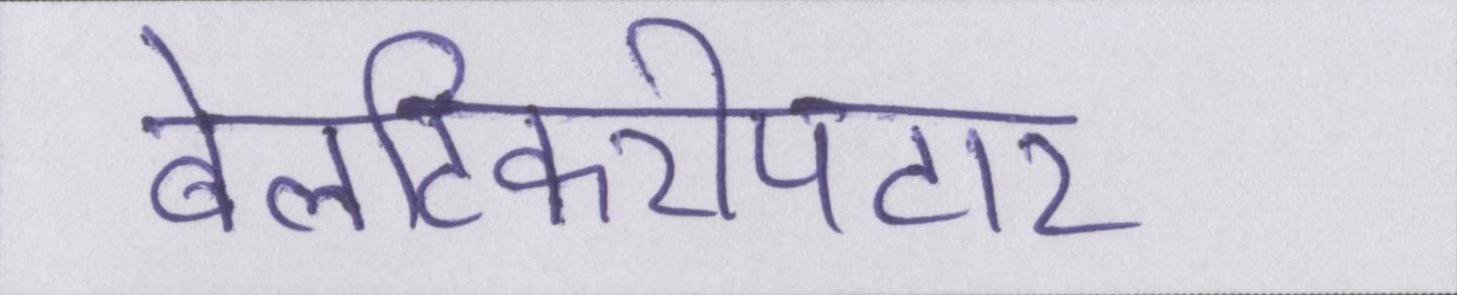 बेलटिकरीपटार